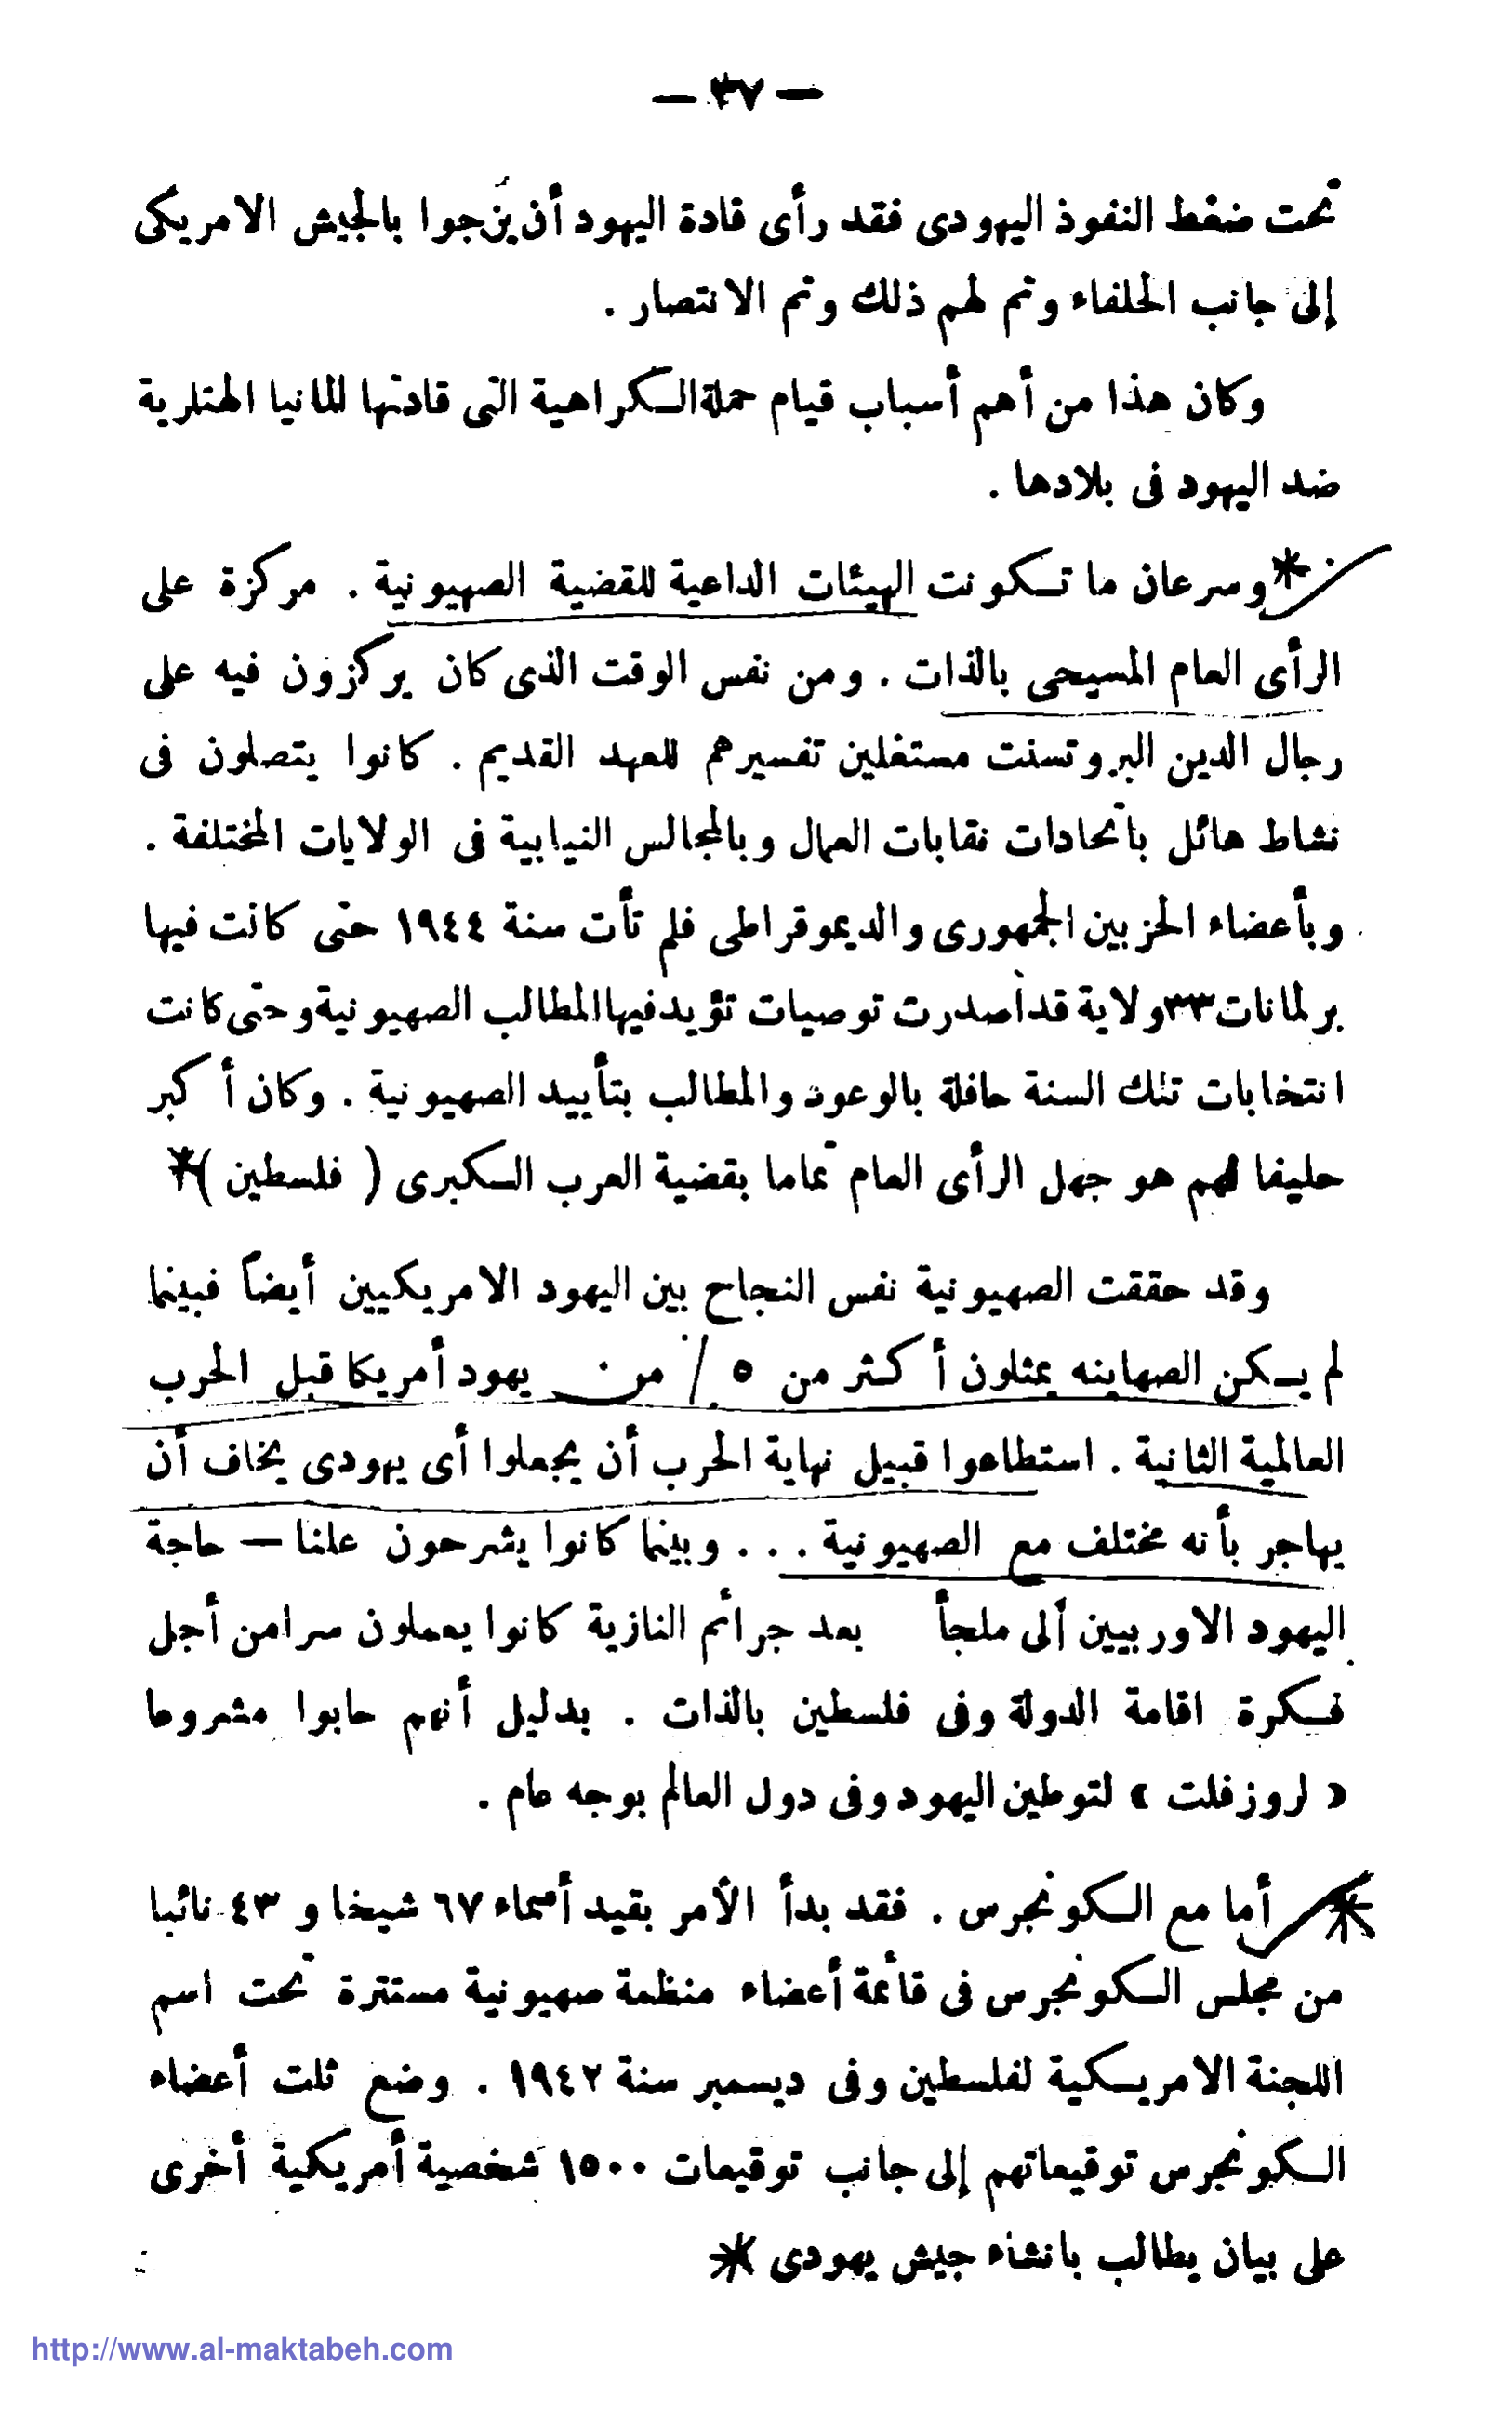 — ٣٧ —
تحت ضغط النفوذ اليهودى فقد رأى قادة اليهود أن يزجوا بالجيش الامريكى
إلى جانب الحلفاء وتم لهم ذلك وتم الانتصار .
وكان هذا من أهم أسباب قيام حملة الكراهية التى قادتها المانيا الهتلرية
ضد اليهود فى بلادها .
* وسرعان ما تكونت الهيئات الداعية للقضية الصهيونية . مركزة على
الرأى العام المسيحى بالذات . ومن نفس الوقت الذى كان يركزون فيه على
رجال الدين البروتسنت مستغلين تفسيرهم للعهد القديم . كانوا يتصلون فى
نشاط هائل باتحادات نقابات العمال وبالمجالس النيابية فى الولايات المختلفة .
وبأعضاء الحزبين الجمهورى والديموقراطى فلم تأت سنة ١٩٤٤ حتى كانت فيها
برلمانات ٣٣ ولاية قد أصدرت توصيات تؤيد فيها المطالب الصهيونية وحتى كانت
انتخابات تلك السنة حافلة بالوعود والمطالب بتأييد الصهيونية . وكان أكبر
حليفا لهم هو جهل الرأى العام تماما بقضية العرب الكبرى ( فلسطين ) *
وقد حققت الصهيونية نفس النجاح بين اليهود الامريكيين أيضاً فبينما
لم يكن الصهاينه يمثلون أكثر من ٥ ٪ من يهود أمريكا قبل الحرب
العالمية الثانية . استطاعوا قبيل نهاية الحرب أن يجعلوا أى يهودى يخاف أن
يهاجر بأنه مختلف مع الصهيونية . . . وبينما كانوا يشرحون علنا — حاجة
اليهود الاوربيين ألى ملجأ بعد جرائم النازية كانوا يعملون سرا من أجل
فكرة اقامة الدولة وفى فلسطين بالذات . بدليل أنهم حابوا مشروعا
« لروزفلت » لتوطين اليهود وفى دول العالم بوجه عام .
* أما مع الكونجرس . فقد بدأ الأمر بقيد أسماء ٦٧ شيخا و ٤٣ نائبا
من مجلس الكونجرس فى قائمة أعضاء منظمة صهيونية مستترة تحت اسم
اللجنة الامريكية لفلسطين وفى ديسمبر سنة ١٩٤٢ . وضع ثلت أعضاء
الكونجرس توقيعاتهم إلى جانب توقيعات ١٥٠٠ شخصية أمريكية أخرى
على بيان يطالب بانشاء جيش يهودى *
http://www.al-maktabeh.com